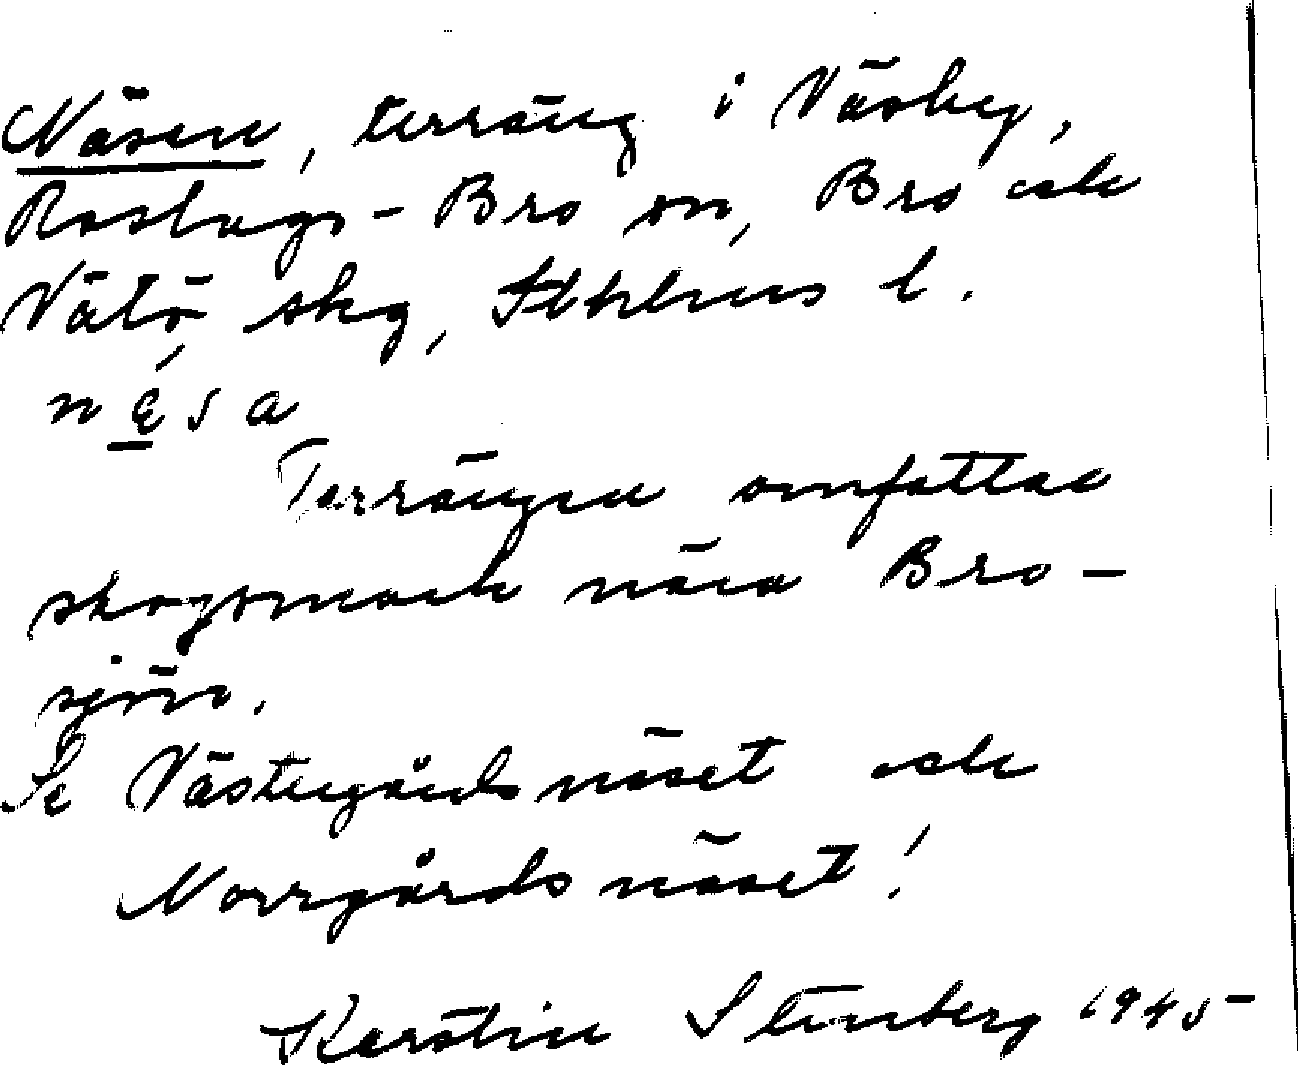 Näsen, terräng i Väsby,
Roslags-Bro sn, Bro och
Vätö skg, Sthlms l.
nę́sa
Terrängen omfattar
skogsmark nära Bro-
sjön.
Se Västergårdsnäset och
Norrgårdsnäset!
Kerstin Stenberg 1945